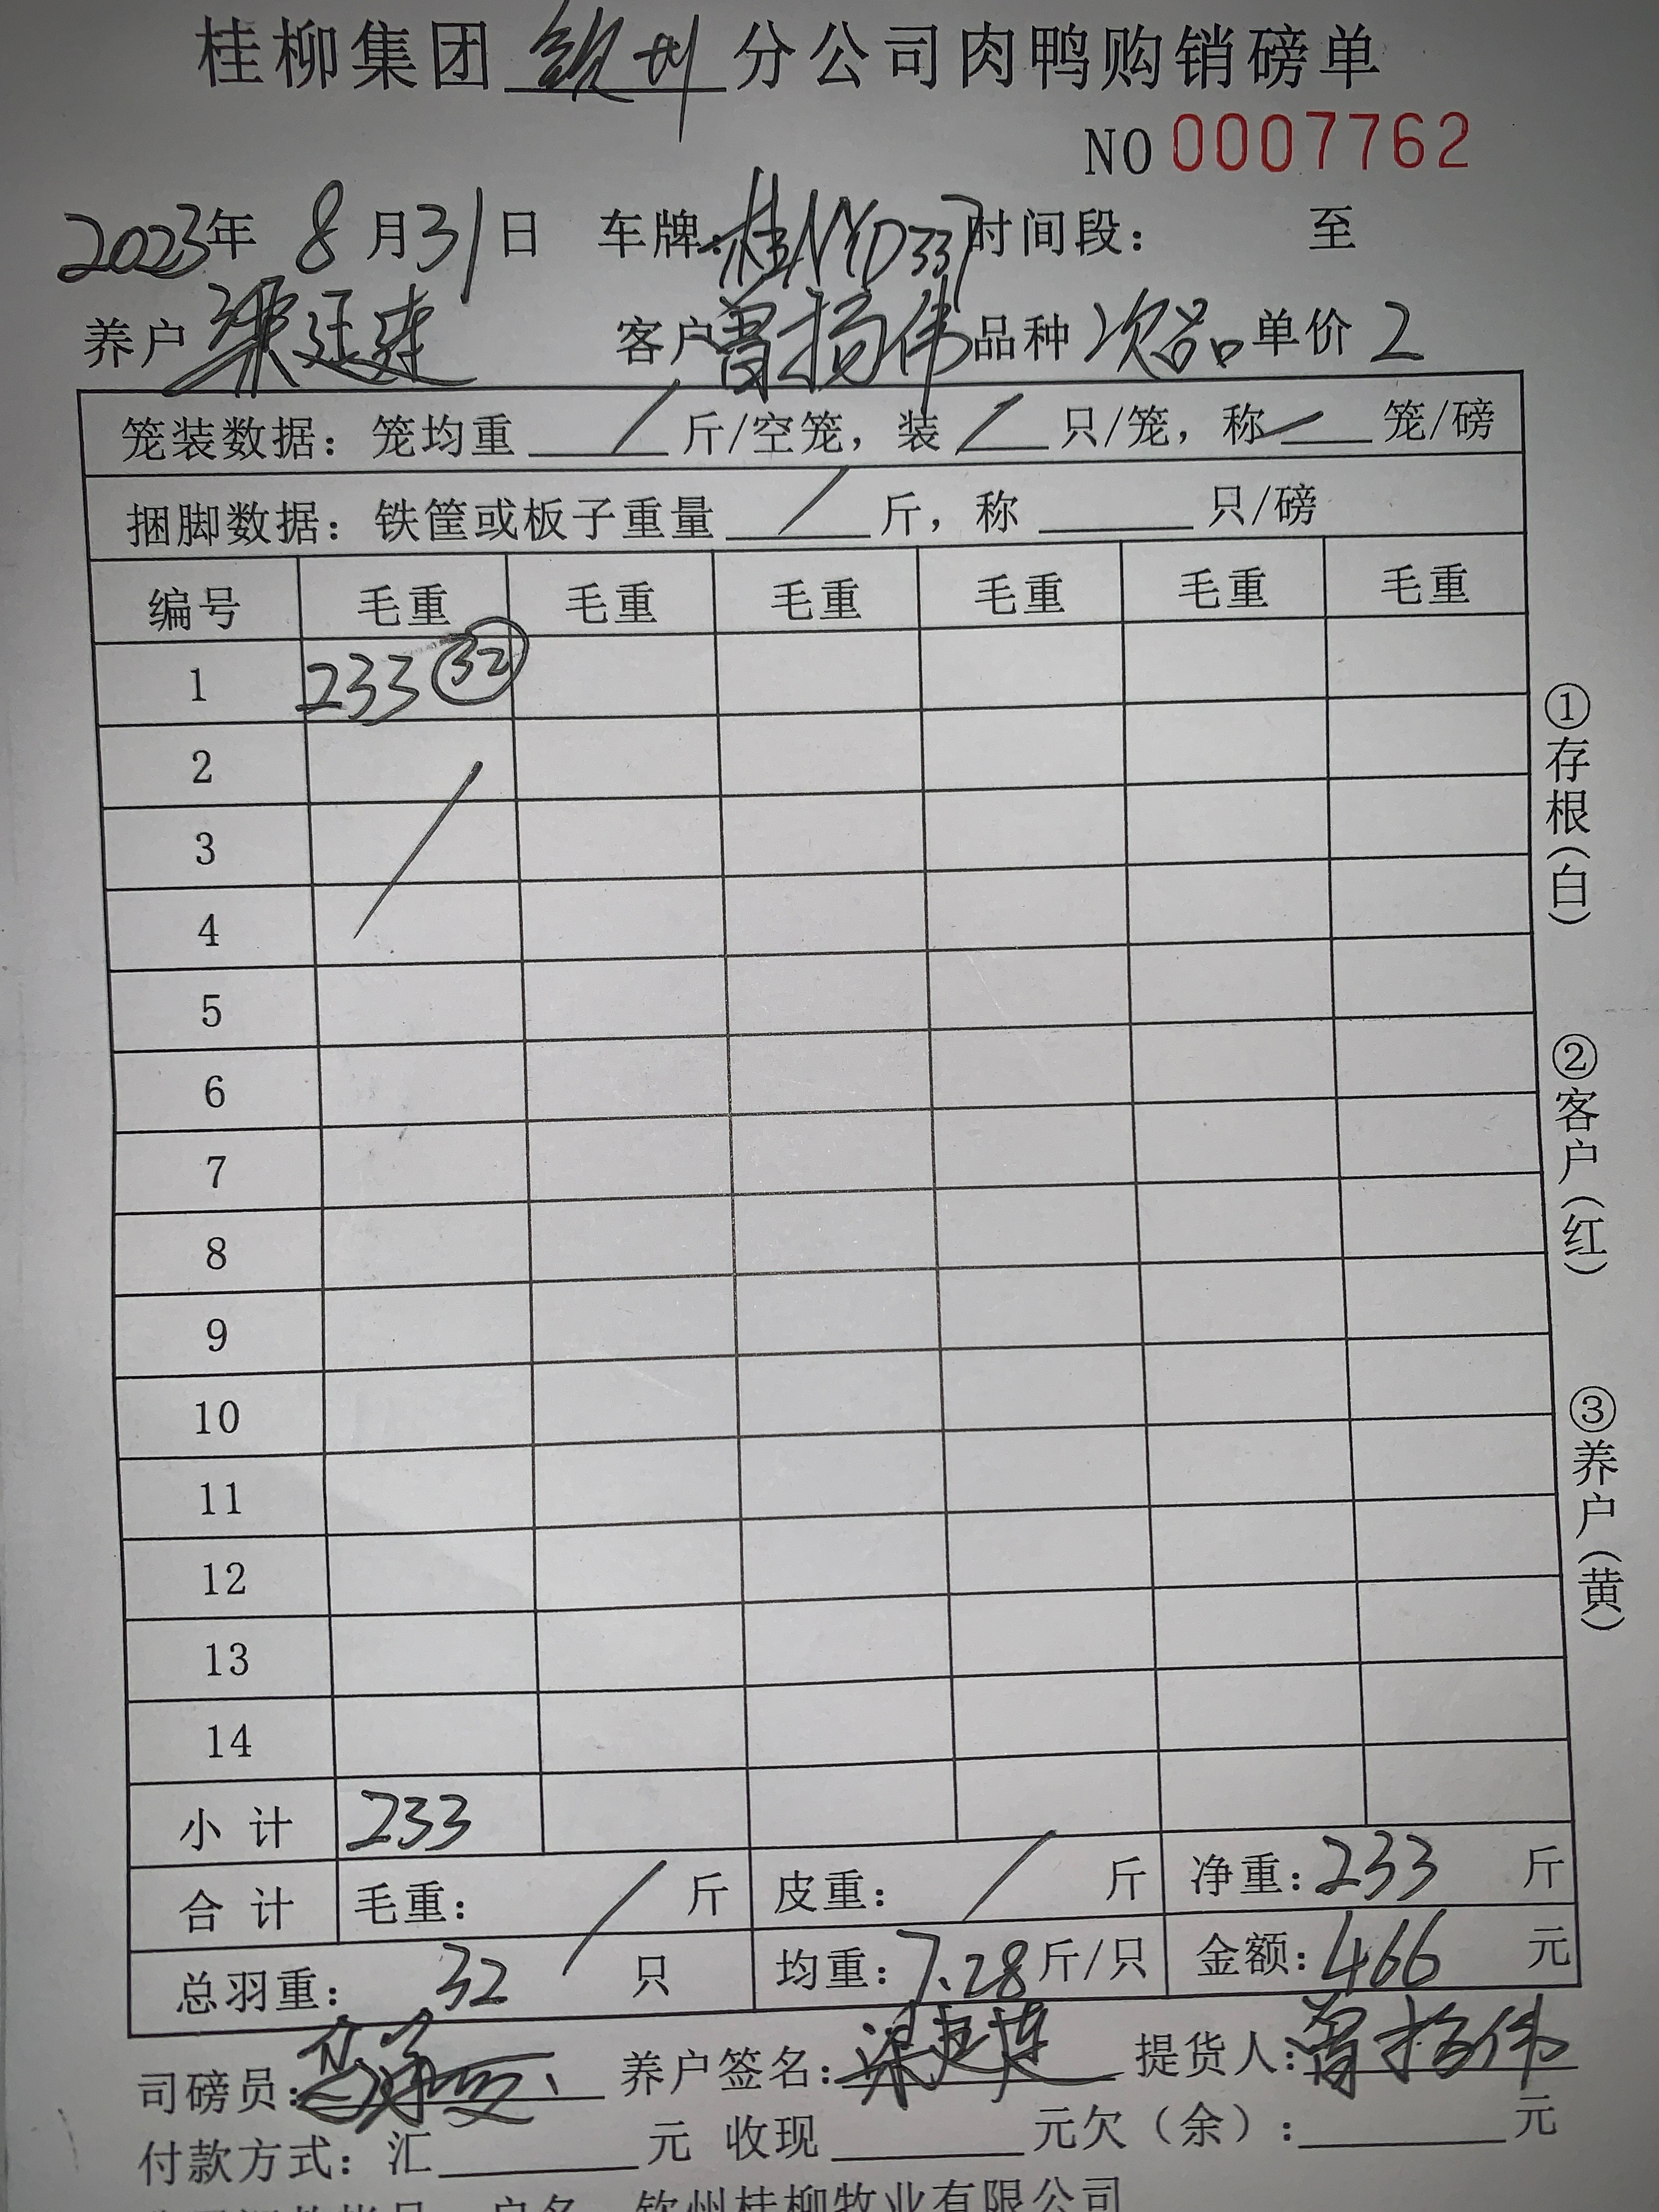 桂柳集团 钦州 分公司肉鸭购销磅单
NO 0007762
2023年 8月31日 车牌：桂NYD337 时间段： 至
养户 梁廷连 客户 曾扬伟 品种 次品 单价 2
笼装数据：笼均重 / 斤/空笼，装 / 只/笼，称 / 笼/磅
捆脚数据：铁筐或板子重量 / 斤，称 只/磅
编号 毛重 毛重 毛重 毛重 毛重 毛重
1 233 ㉜
2
3
4
5
6
7
8
9
10
11
12
13
14
小计 233
合计 毛重： / 斤 皮重： / 斤 净重：233 斤
总羽重： 32 只 均重：7.28斤/只 金额：466 元
司磅员： 养户签名：梁廷连 提货人：曾扬伟
付款方式：汇 元 收现 元欠（余）： 元
户名 钦州桂柳牧业有限公司
①存根（白）
②客户（红）
③养户（黄）